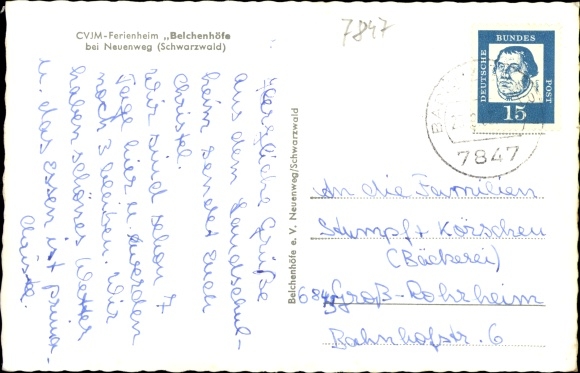 CVJM-Ferienheim „Belchenhöfe
bei Neuenweg (Schwarzwald)
7847
Herzliche Grüße
aus dem Landschul-
heim sendet Euch
Christel.
Wir sind schon 7
Tage hier u. werden
noch 3 bleiben. Wir
haben schönes Wetter
u. das Essen ist prima.
Christel.
Belchenhöfe e. V. Neuenweg/Schwarzwald
DEUTSCHE
BUNDES
POST
15
7847
An die Familien
Stumpf + Körschen
(Bäckerei)
6845 Groß-Rohrheim
Bahnhofstr. 6